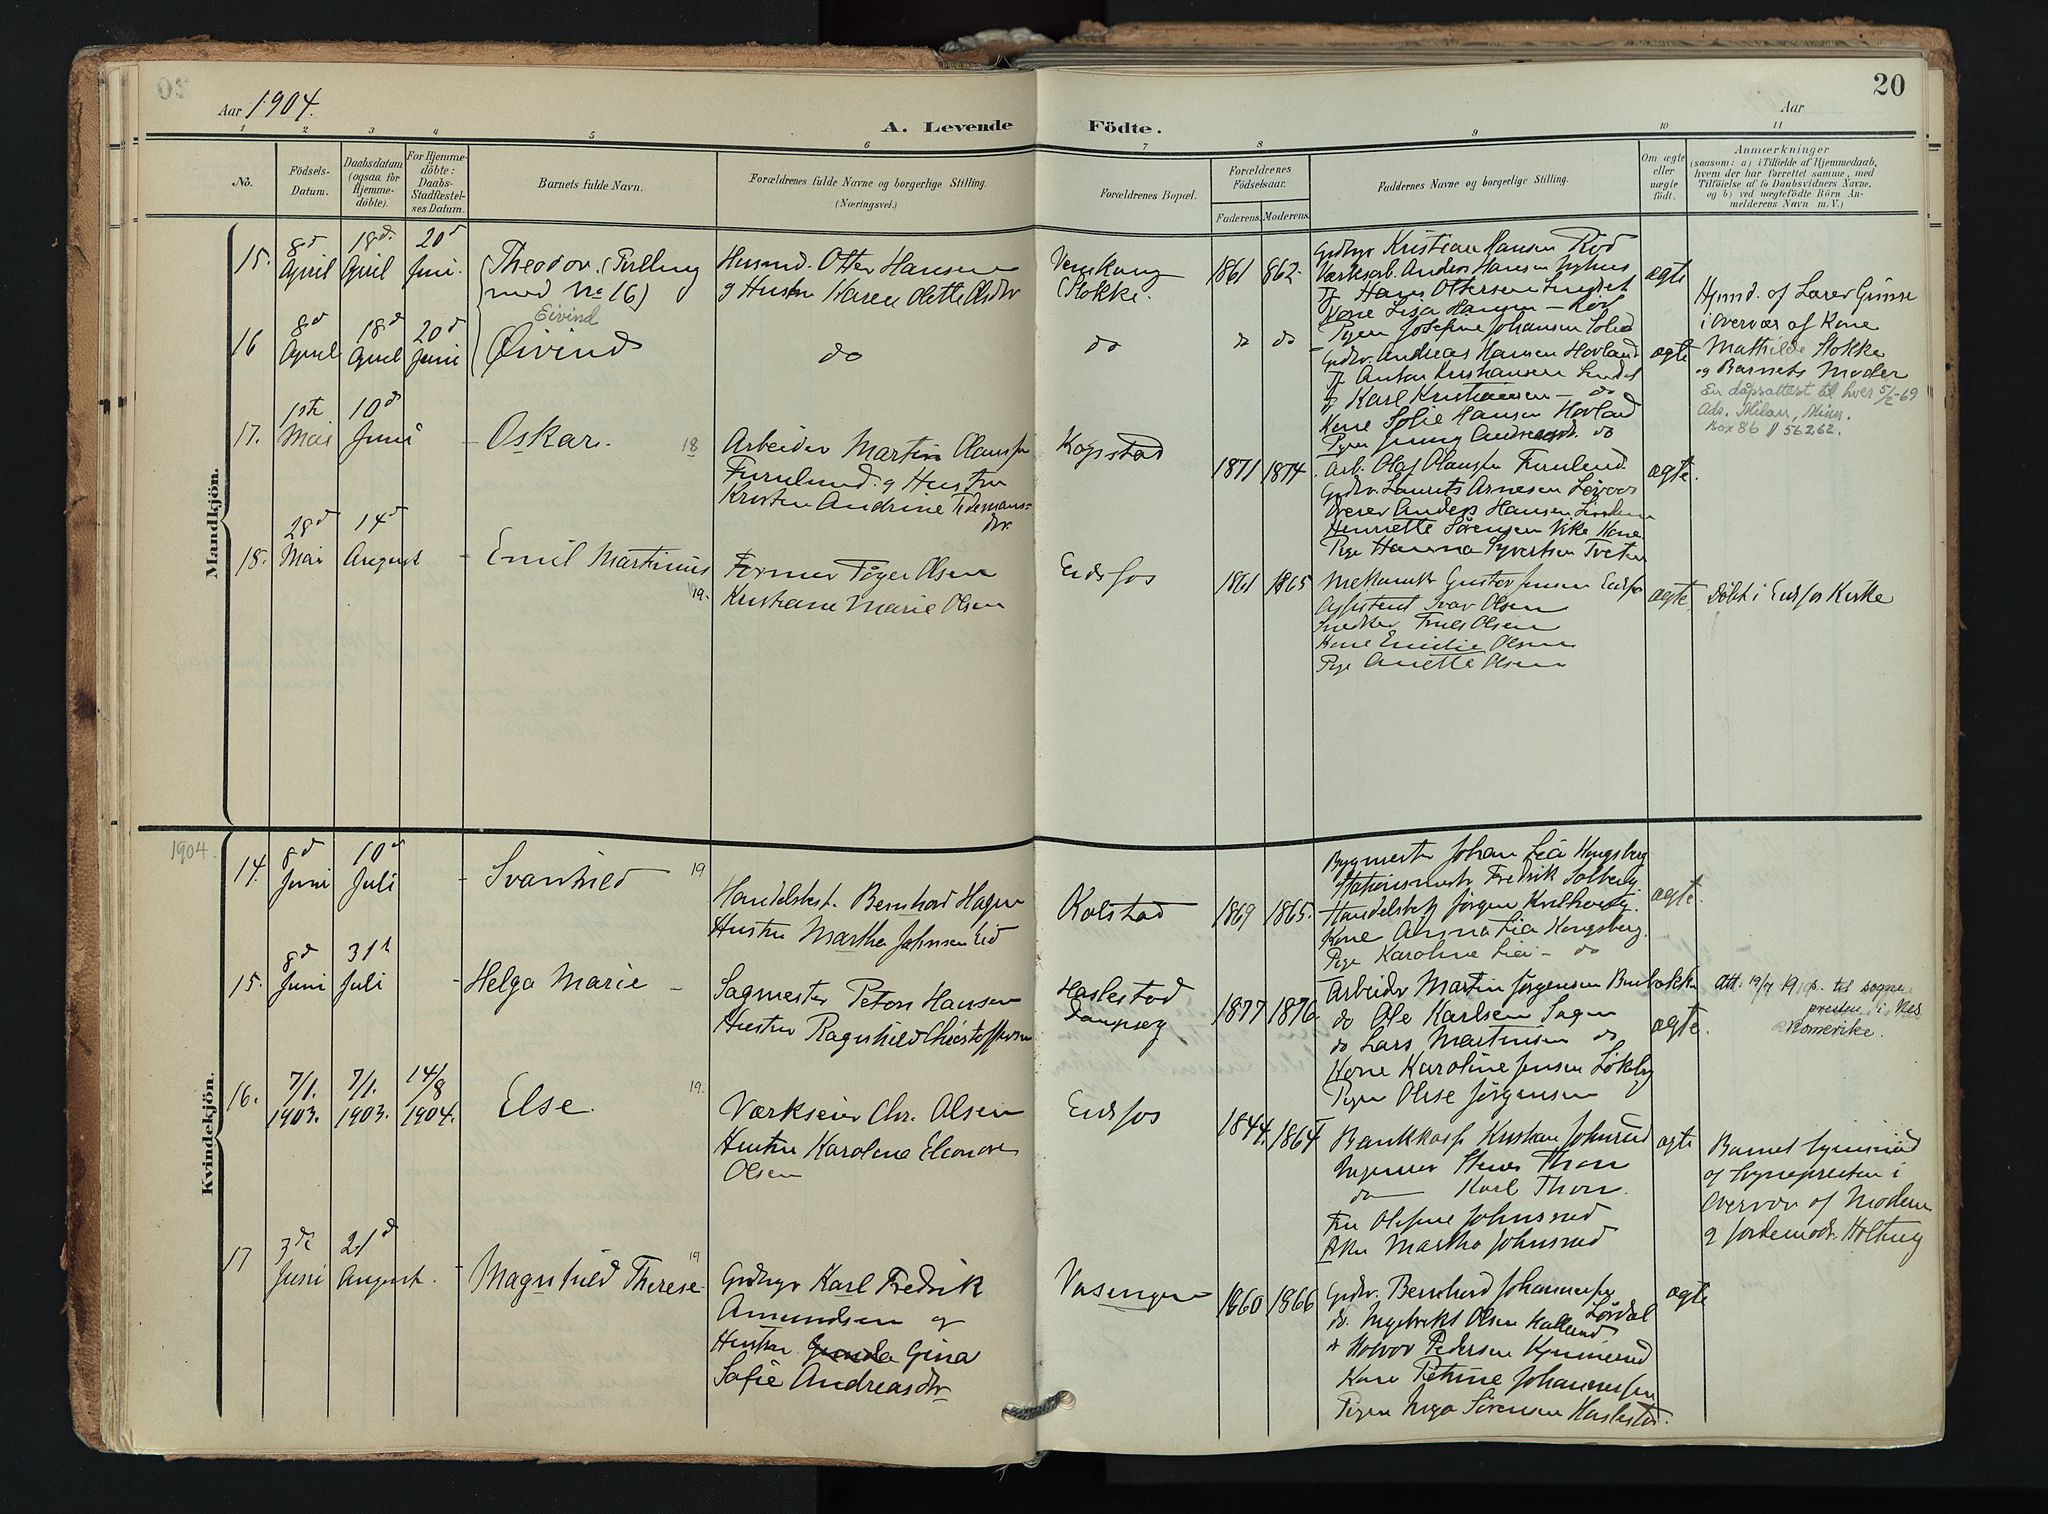 20
Aar 1904.
A. Levende Födte.
Aar
1 2 3 4 5 6 7 8 9 10 11
No.
Födsels-Datum.
Daabsdatum (ogsaa for Hjemme-döbte).
For Hjemme-döbte: Daabs-Stadfæstel-ses Datum.
Barnets fulde Navn.
Forældrenes fulde Navne og borgerlige Stilling.
(Næringsvei.)
Forældrenes Bopæl.
Forældrenes Födselsaar.
Faderens. Moderens.
Faddernes Navne og borgerlige Stilling.
Om ægte eller uægte födt.
Anmærkninger
(saasom: a) i Tilfælde af Hjemmedaab,
hvem der har forrettet samme, med
Tilföielse af to Daabsvidners Navne.
og b) ved uægtefödte Börn An-
melderens Navn m. V.)
Mandkjön.
15. 8d April 18d. April 20d Juni.
Theodor. (Tvilling
med No 16)
Otter Hansen
g Hustru Karen Olette Olsdtr
Stokke.
1861 862.
Grdbgr Kristian Hansen Röd
Værksarb. Anders Hansen Nyhus
Hans Ottersen
Kone Lisa Hansen - Röd
Pigen Josefine Johansen
ægte
16 8d April 18d April 20d Juni
Eivind
Øivind
do
do
do do
Andreas Hansen Hovland
Anton Kristiansen
Karl Kristiansen - do
Kone Sofie Hansen Hovland
Pigen Jenny Andreasdt. do
ægte
Hjmd. af Lærer Grimse
i Overvær af Kone
Mathilde Stokke
og Barnets Moder
En dåpsattest til hver 5/2-69
Adr. Milan, Minn.
Box 86 // 56262.
17. 1ste Mai 10d Juni -
Oskar. 18
Arbeider Martin Olausen
Furulund. g Hustru
Kristen Andrine Tidemans-
dtr.
Kopstad
1871 1874.
Arb. Olaf Olausen Furulund.
Grdbr. Laurits Arnesen
Anders Hansen
Henriette Sørensen Vike Kone
Pige Hanna Syvertsen Tveten
ægte.
18. 28d Mai 14d August -
Emil Martinius
19.
Former Töger Olsen
Kristiane Marie Olsen
Eidsfos
1861 1865
Mekanik Gustav Jensen Eidsfos
Assistent Ivar Olsen
Snedker Olsen
Kone Emilie Olsen
Pige Anette Olsen
ægte
Döbt i Eidsfos Kirke
1904.
Kvindekjön.
14. 8d Juni 10d Juli -
Svanhild 19
Handelsbest. Bernhard Hagen
Hustru Martha Johnsen Eid
Kolstad
1869 1865.
Bygmester Johan Lia Kongsberg
Stationsmestr Fredrik Solberg
Handelsbetj Jörgen
Kone Anna Lia Kongsberg.
Pige Karoline Lia - do
ægte.
15. 8d Juni 31te Juli -
Helga Marie -
Sagmester Petter Hansen
Hustru Ragnhild Christoffersen
Haslestad
Dampsag
1877 1876.
Arbeider Martin Jörgensen Burbakken
do Ole Karlsen Sagen
do Lars Martinsen do
Kone Karoline Jensen Lökeby
Pigen Olise Jörgensen
ægte.
Att. 19/7 19 til sogne-
presten i Nes
Romerike.
16. 7/1. 1903. 7/1. 1903. 14/8 1904.
Else. 19.
Værkseier Chr. Olsen
Hustru Karoline Eleonore
Olsen
Eidsfos
1844. 1864
Bankkass Kristian Johnsrud
Ingeniør Thon
do Karl Thon.
Fru Olefine Johnsrud
Martha Johnsrud
ægte
Barnet hjemmedöbt
af Sognepresten i
Overvær af Moderen
g Jordemodr. Holtung
17 3die Juni 21d August. -
Magnhild Therese 19
Grdbgr Karl Fredrik
Amundsen og
Hustru Gina
Sofie Andreasdtr
Vasengen
1860 1866
Grdbr. Bernhard Johannessen
Lørdal
do. Ingebrekt Olsen
Halvor Pedersen
Kone Petrine Johannessen
Pigen Inga Sörensen Haslestad.
ægte